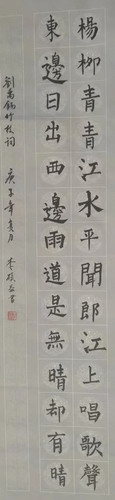 楊柳青青江水平聞郎江上唱歌聲
東邊日出西邊雨道是無晴却有晴
劉禹錫竹枝詞 庚子年夏月